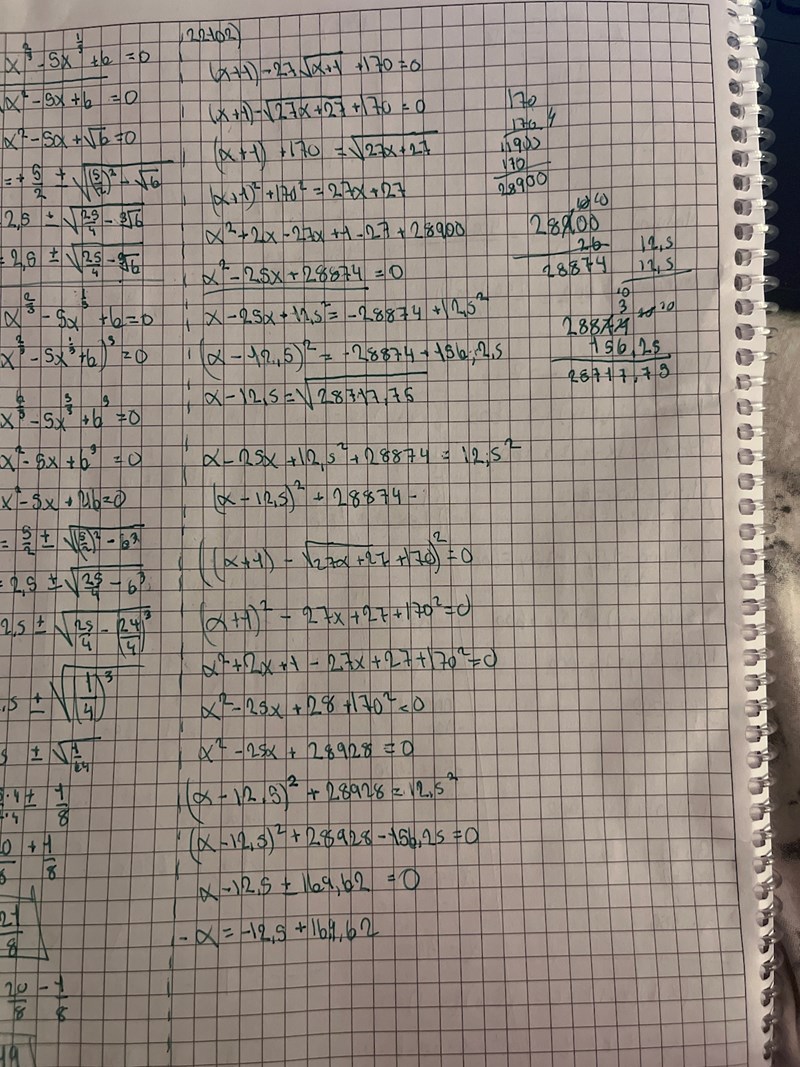 x^2/3 - 5x^1/3 + 6 = 0
√x² - 5x + 6 = 0
x² - 5x + √6 = 0
= + 5/2 ± √(5/2)² - √6
2,5 ± √25/4 - ∛6
= 2,5 ± √25/4 - ∛6
x^2/3 - 5x^1/3 + 6 = 0
x^2/3 - 5x^1/3 + 6)³ = 0
x^6/3 - 5x^3/3 + 6³ = 0
x² - 5x + 6³ = 0
= 5/2 ± √(5/2)² - 6³
= 2,5 ± √25/4 - 6³
2,5 ± √25/4 - (24/4)³
,5 ± √(1/4)³
± √1/64
± 1/8
+ 1/8
21/8
20/8 - 1/8
19
2210 2)
(x+1) - 27√x+1 + 170 = 0
(x+1) - √27x+27 + 170 = 0
(x+1) + 170 = √27x+27
(x+1)² + 170² = 27x + 27
x² + 2x - 27x + 1 - 27 + 28900
x² - 25x + 28874 = 0
x - 25x + 12,5² = -28874 + 12,5²
(x - 12,5)² = -28874 + 156,25
x - 12,5 = √28717,75
x - 25x + 12,5² + 28874 = 12,5²
(x - 12,5)² + 28874 -
((x+1) - √27x+27 + 170)² = 0
(x+1)² - 27x + 27 + 170² = 0
x² + 2x + 1 - 27x + 27 + 170² = 0
x² - 25x + 28 + 170² = 0
x² - 25x + 28928 = 0
(x - 12,5)² + 28928 = 12,5²
(x - 12,5)² + 28928 - 156,25 = 0
x - 12,5 ± 169,62 = 0
- x = -12,5 + 169,62
170
170
11900
170
28900
28900
26
28874
12,5
12,5
28874
156,25
28717,75